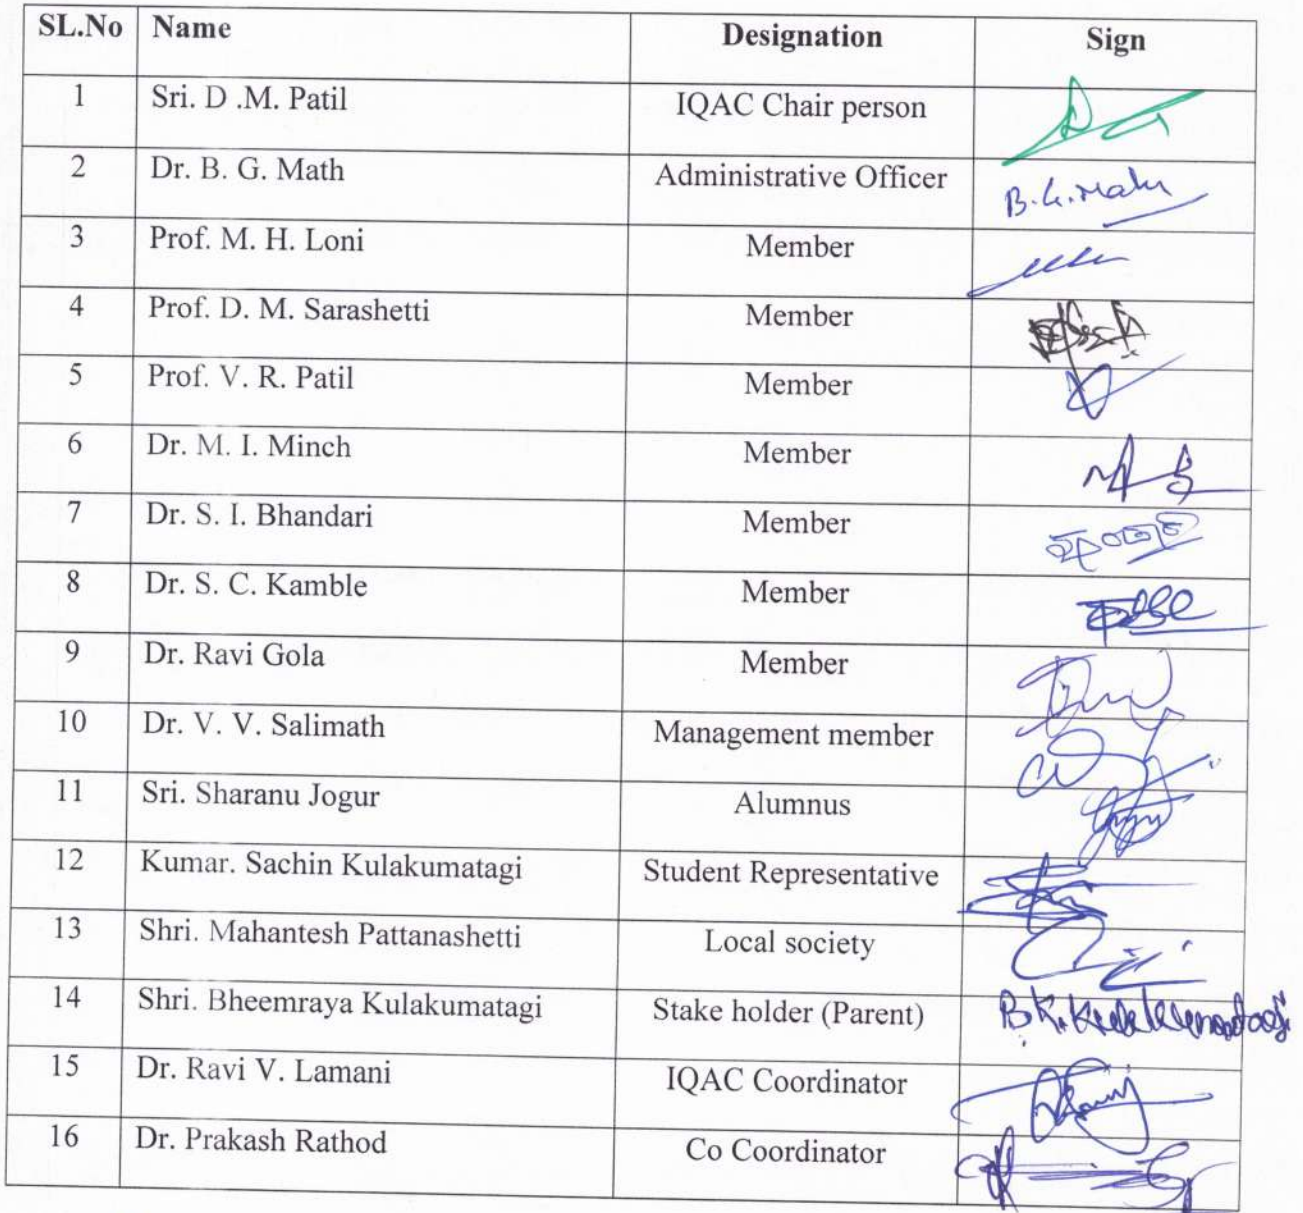 SL.No Name Designation Sign
1 Sri. D .M. Patil IQAC Chair person
2 Dr. B. G. Math Administrative Officer B.G.Math
3 Prof. M. H. Loni Member
4 Prof. D. M. Sarashetti Member
5 Prof. V. R. Patil Member
6 Dr. M. I. Minch Member
7 Dr. S. I. Bhandari Member
8 Dr. S. C. Kamble Member
9 Dr. Ravi Gola Member
10 Dr. V. V. Salimath Management member
11 Sri. Sharanu Jogur Alumnus
12 Kumar. Sachin Kulakumatagi Student Representative
13 Shri. Mahantesh Pattanashetti Local society
14 Shri. Bheemraya Kulakumatagi Stake holder (Parent) B.K.Kulakumatagi
15 Dr. Ravi V. Lamani IQAC Coordinator
16 Dr. Prakash Rathod Co Coordinator